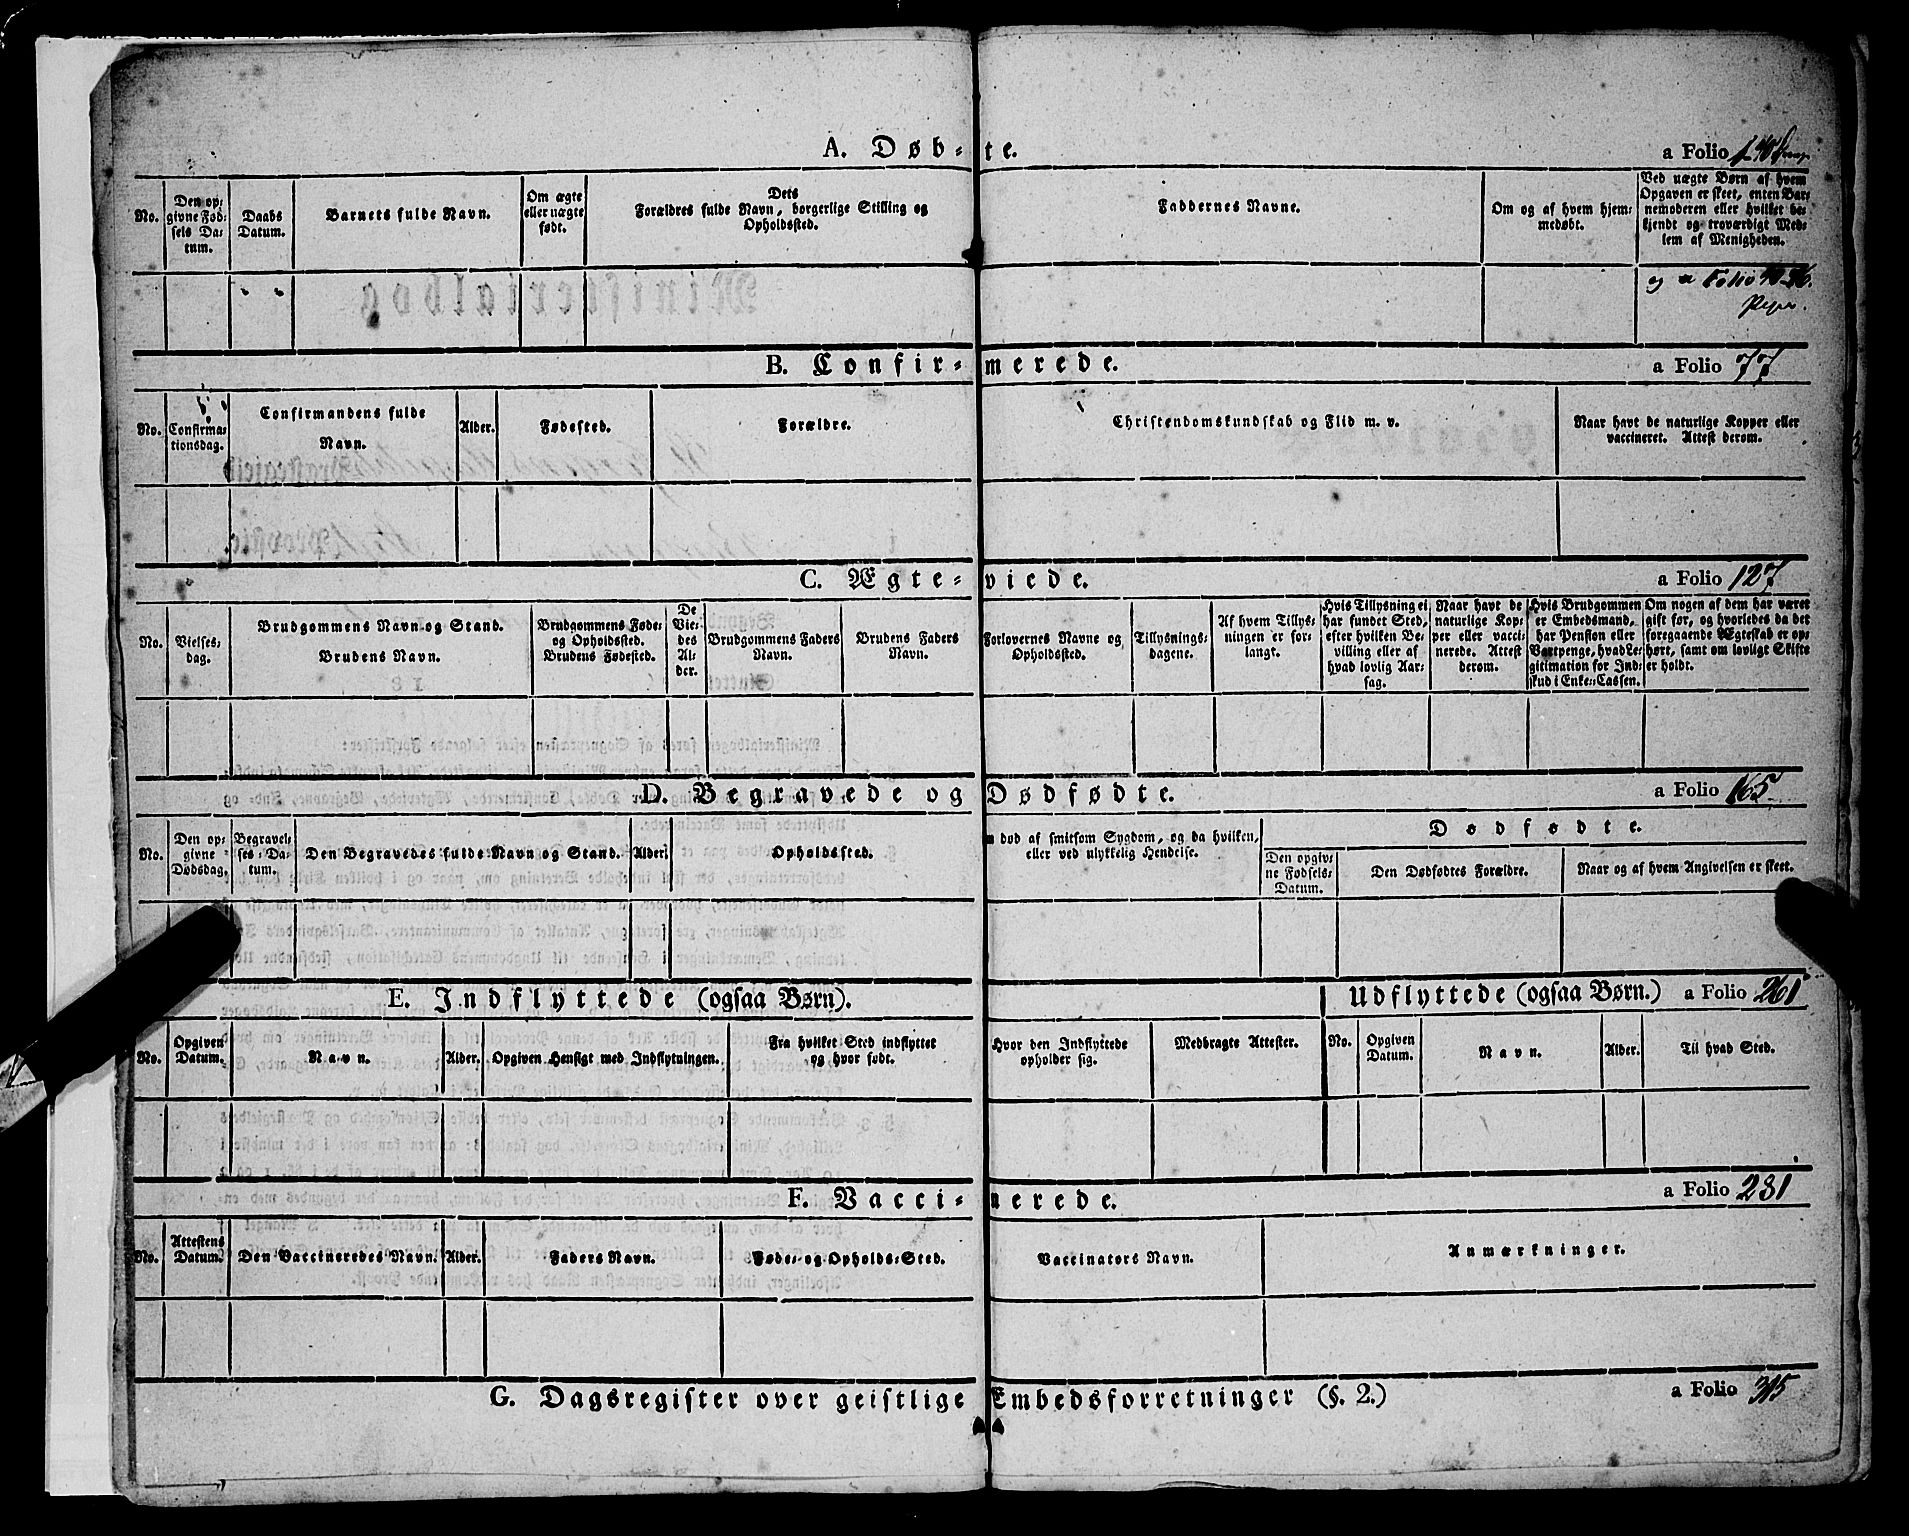 A. Døb-te. a Folio
No.
Den op-
givne Fød-
sels Da-
tum.
Daabs
Datum.
Barnets fulde Navn.
Om ægte
eller uægte
født.
Dets
Forældres fulde Navn, borgerlige Stilling og
Opholdssted.
Faddernes Navne.
Om og af hvem hjem-
medøbt.
Ved uægte Børn af hvem
Opgaven er skeet, enten Bar-
nemoderen eller hvilket be-
kjendt og troværdigt Med-
lem af Menigheden.
og a Folio
B. Confir-merede. a Folio 77
No.
Confirma-
tionsdag.
Confirmandens fulde
Navn.
Alder.
Fødested.
Forældre.
Christendomskundskab og Flid m. v.
Naar havt de naturlige Kopper eller
vaccineret. Attest derom.
C. Ægte-viede. a Folio 127
No.
Vielses-
dag.
Brudgommens Navn og Stand.
Brudens Navn.
Brudgommens Føde-
og Opholdssted.
Brudens Fødested.
De
Vie-
des
Al-
der.
Brudgommens Faders
Navn.
Brudens Faders
Navn.
Forlovernes Navne og
Opholdssted.
Tillysnings-
dagene.
Af hvem Tillys-
ningen er for-
langt.
Hvis Tillysning ei
har fundet Sted,
efter hvilken Be-
villing eller af
hvad lovlig Aar-
sag.
Naar havt de
naturlige Kop-
per eller vacci-
nerede. Attest
derom.
Hvis Brudgommen
er Embedsmand,
har Pension eller
Vartpenge, hvad Le-
gitimation for Ind-
skud i Enke-Cassen.
Om nogen af dem har været
gift før, og hvorledes da det
foregaaende Ægteskab er op-
hørt, samt om lovligt Skifte
er holdt.
D. Begravede og Dødfødte. a Folio 165
No.
Den op-
givne
Dødsdag.
Begravel-
ses-Da-
tum.
Den Begravedes fulde Navn og Stand.
Alder.
Opholdssted.
død af smitsom Sygdom, og da hvilken,
eller ved ulykkelig Hendelse.
Dødfødte.
Den opgiv-
ne Fødsels-
Datum.
Den Dødfødtes Forældre.
Naar og af hvem Angivelsen er skeet.
E. Indflyttede (ogsaa Børn). Udflyttede (ogsaa Børn.) a Folio 261
No.
Opgiven
Datum.
Navn.
Alder.
Opgiven Hensigt med Indflytningen.
Fra hvilket Sted indflyttet
og hvor født.
Hvor den Indflyttede
opholder sig.
Medbragte Attester.
No.
Opgiven
Datum.
Navn.
Alder.
Til hvad Sted.
F. Vacci-nerede. a Folio 281
No.
Attestens
Datum.
Den Vaccineredes Navn.
Alder.
Faders Navn.
Føde- og Opholds-Sted.
Vaccinators Navn.
Anmærkninger.
G. Dagsregister over geistlige Embedsforretninger (§. 2.) a Folio 315